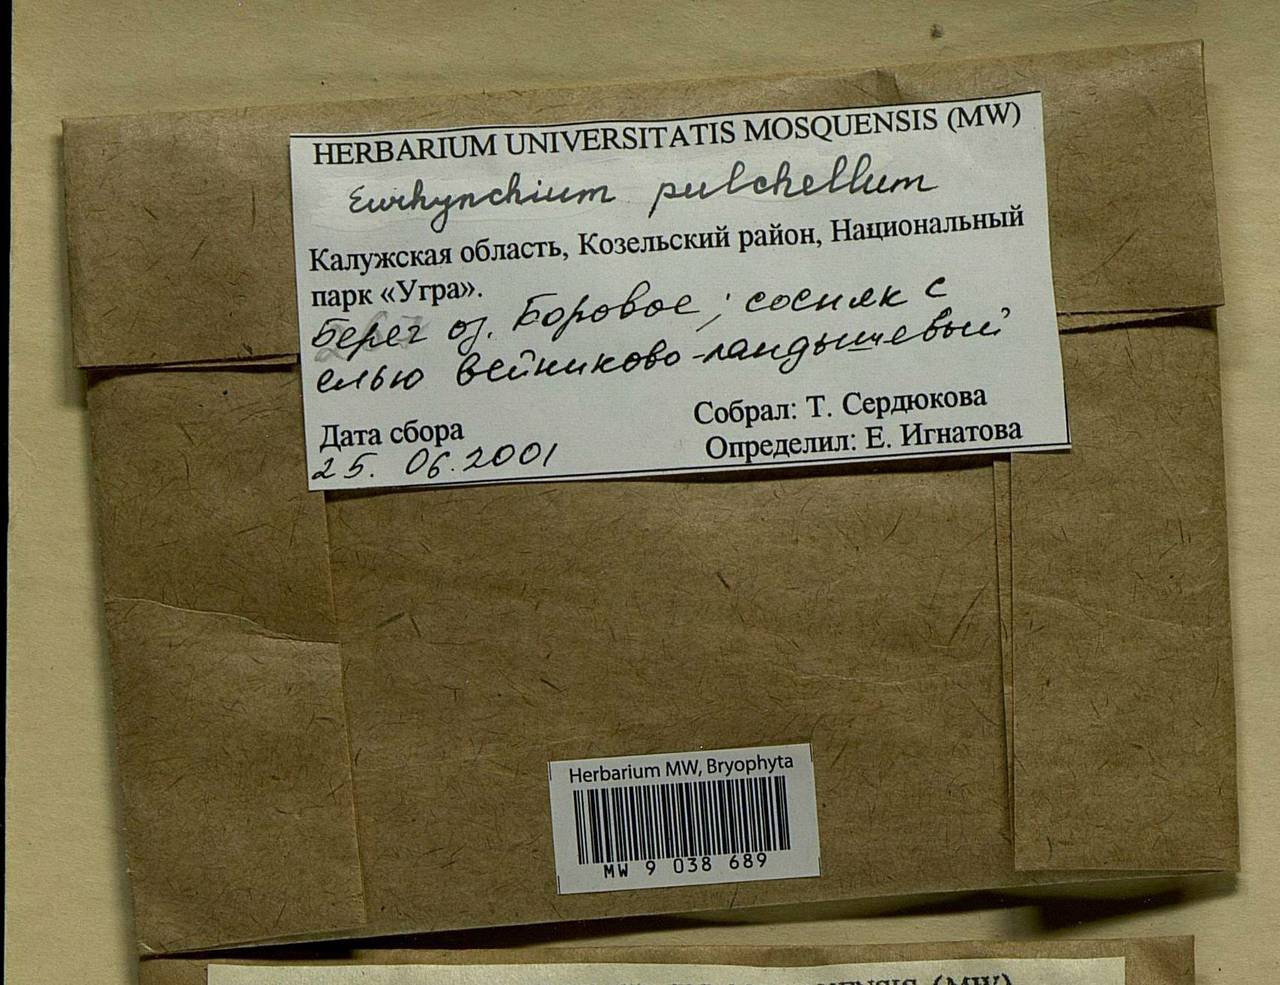 HERBARIUM UNIVERSITATIS MOSQUENSIS (MW)
Eurhynchium pulchellum
Калужская область, Козельский район, Национальный
парк «Угра».
Берег оз. Боровое; сосняк с
елью вейниково-ландышевый
Дата сбора
25. 06.2001
Собрал: Т. Сердюкова
Определил: Е. Игнатова
Herbarium MW, Bryophyta
MW 9 038 689
(MW)